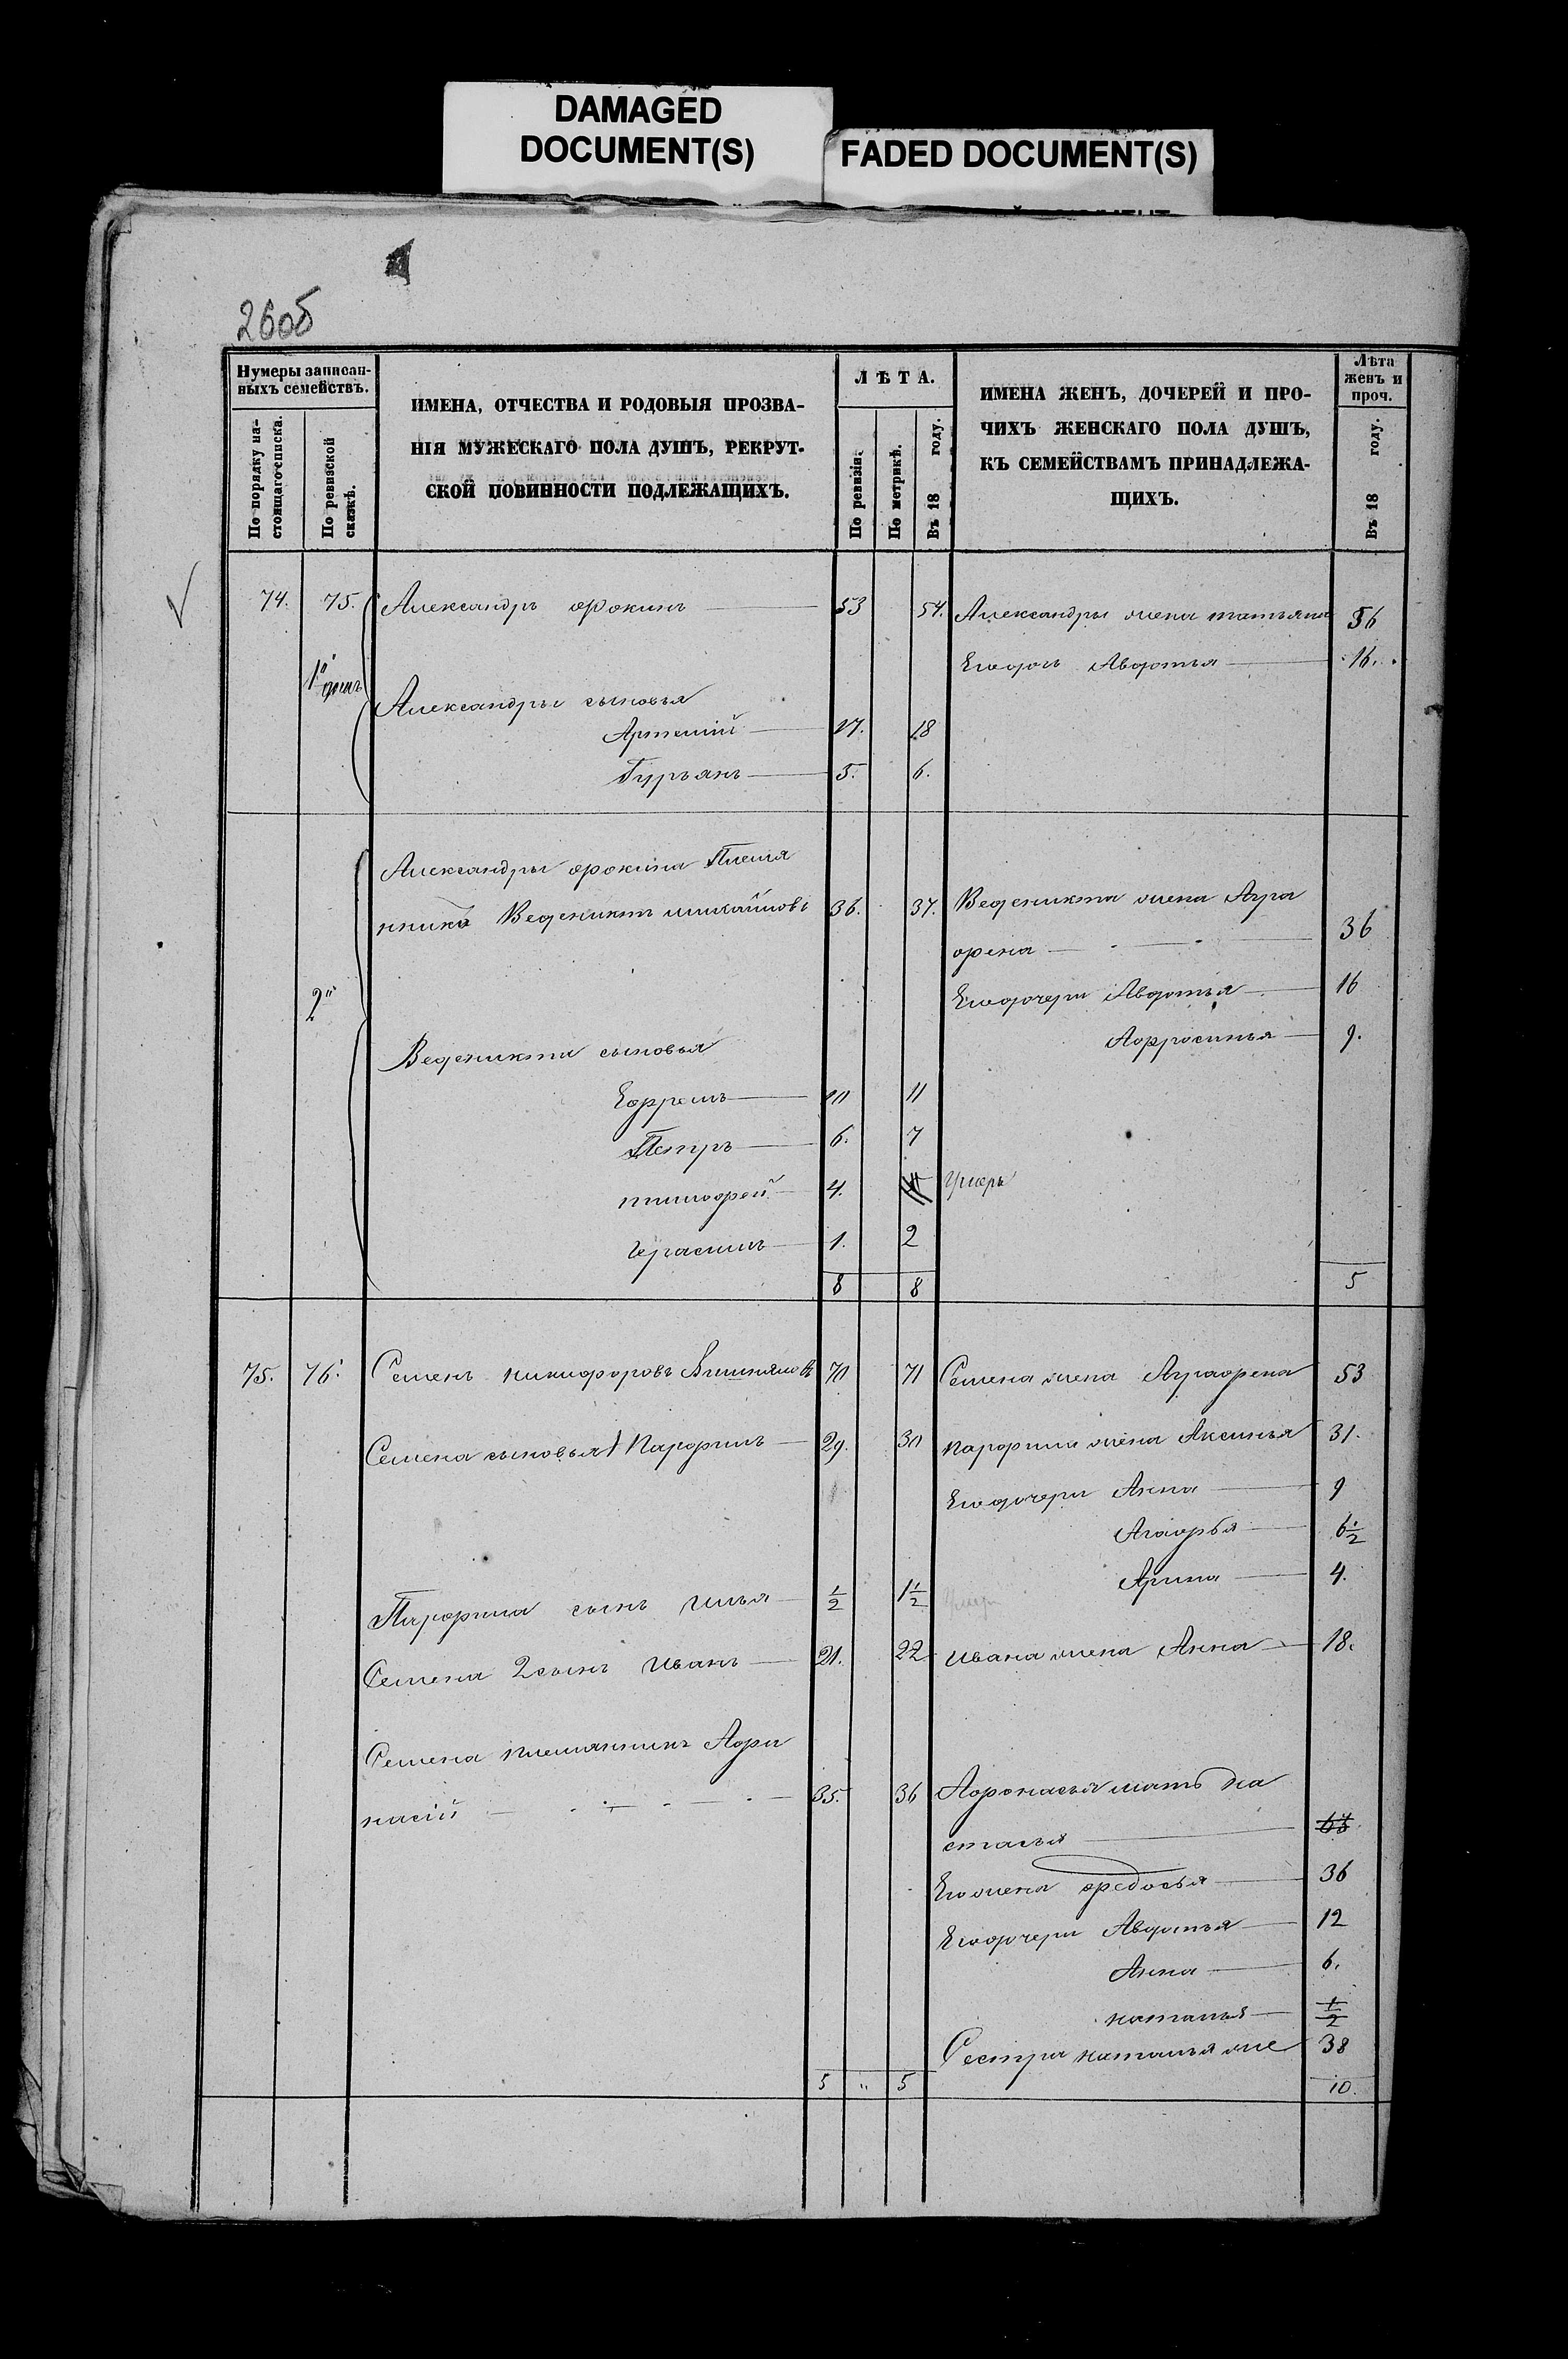 DAMAGED
DOCUMENT(S)
FADED DOCUMENT(S)
26об
Нумеры записан-
ныхъ семействъ.
По порядку на-
стоящаго списка.
По ревизской
сказкѣ.
ИМЕНА, ОТЧЕСТВА И РОДОВЫЯ ПРОЗВА-
НІЯ МУЖЕСКАГО ПОЛА ДУШЪ, РЕКРУТ-
СКОЙ ПОВИННОСТИ ПОДЛЕЖАЩИХЪ.
ЛѢТА.
По ревизіи.
По метрикѣ.
Въ 18 году.
ИМЕНА ЖЕНЪ, ДОЧЕРЕЙ И ПРО-
ЧИХЪ ЖЕНСКАГО ПОЛА ДУШЪ,
КЪ СЕМЕЙСТВАМЪ ПРИНАДЛЕЖА-
ЩИХЪ.
Лѣта
женъ и
проч.
Въ 18 году.
74. 75. Александръ фокинъ 53 54. Александры жена татьяна 56
Авдотья 16.
1й домъ
Александры сыновья
Артемій 17. 18
Гурьянъ 5. 6.
Александры фокина Племя
нникъ Веденихтъ михайловъ 36. 37. Веденикта жена Агра
фена 36
2й
Его дочери Авдотья 16
Афросинья 9.
Веденикта сыновья
Ефремъ 10 11
Петръ 6. 7
тимофей 4. умеръ
Герасимъ 1. 2
8 8 5
75. 76. Семенъ никифоровъ 70 71 Семена жена Аграфена 53
Семена сыновья 1 Парфинъ 29. 30 парфина жена Аксинья 31.
Его дочери Анна 9
Агафья 6 1/2
Арина 4.
Парфина сынъ илья 1/2 1 1/2 умеръ
Семена 2 сынъ иванъ 21. 22 ивана жена Анна 18.
Семена племянникъ Афа
насій 35. 36 Афонасья мать на
стасья
Его жена федосья 36
Его дочери Авдотья 12
Анна 6.
наталья 1/2
Сестра наталья 38
5 " 5 10.